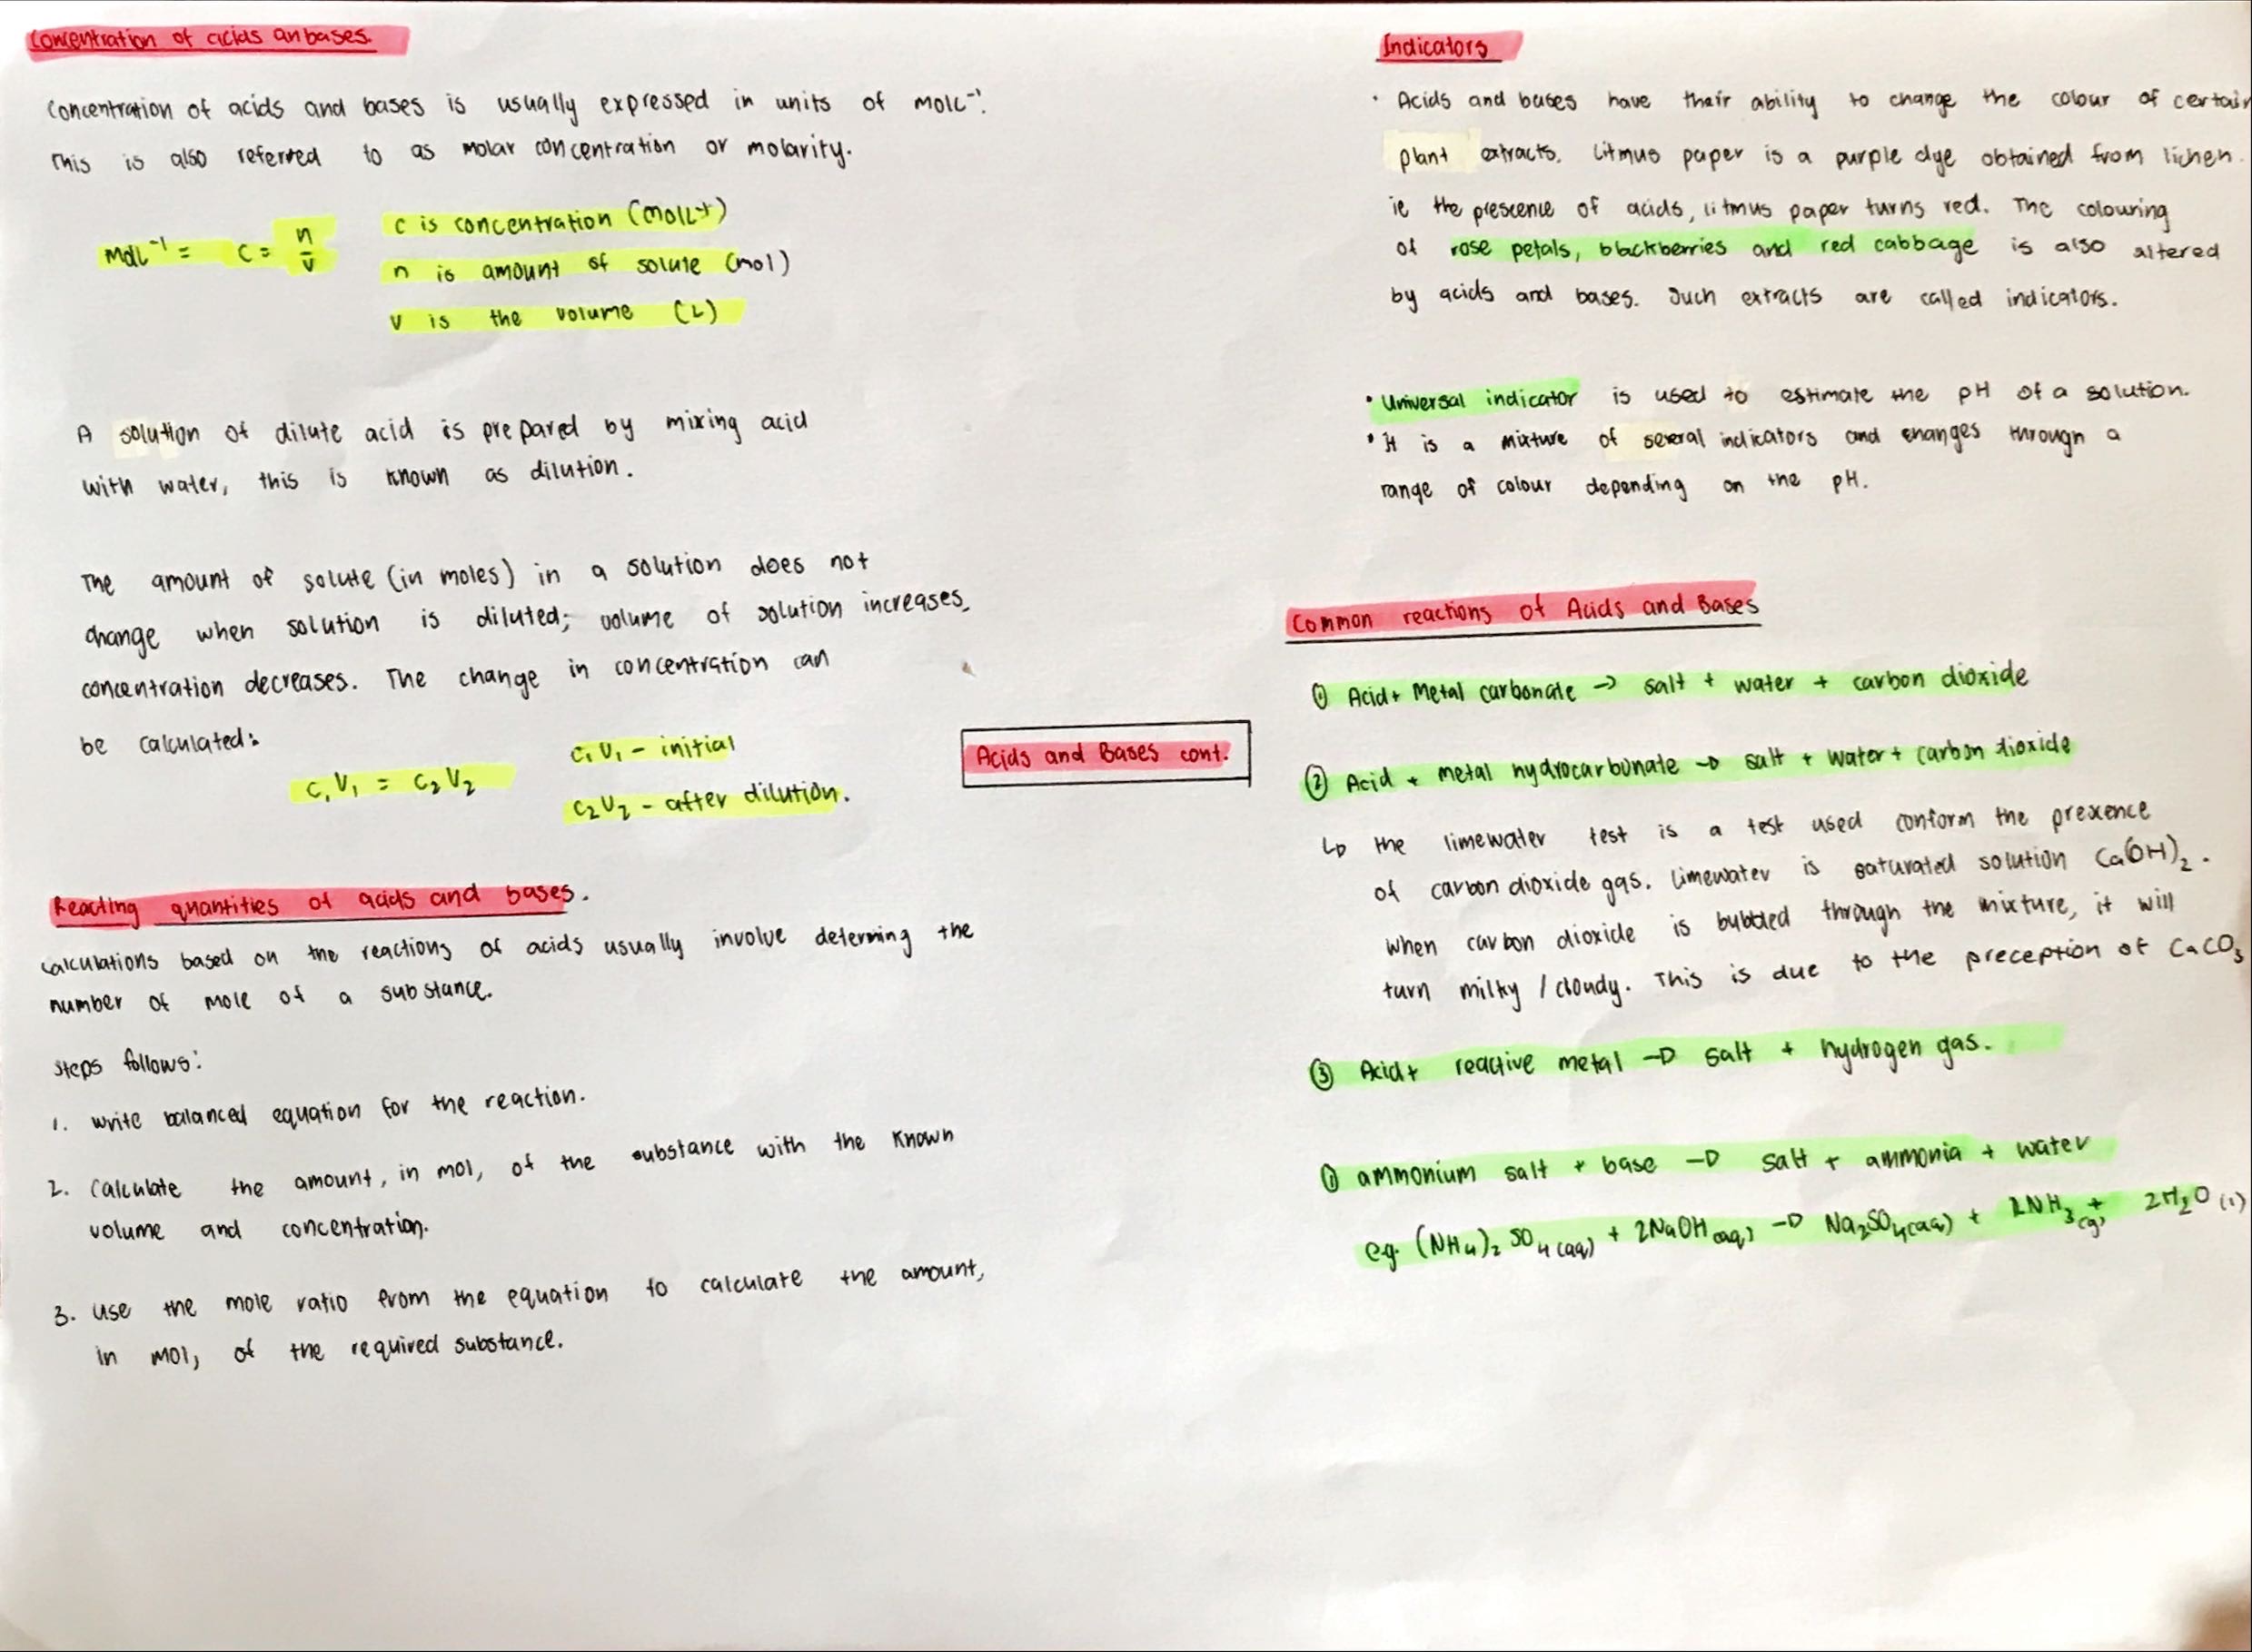 Concentration of acids an bases.
Concentration of acids and bases is usually expressed in units of molL⁻¹.
This is also referred to as molar concentration or molarity.
molL⁻¹ = C = n/v
C is concentration (molL⁻¹)
n is amount of solute (mol)
V is the volume (L)
A solution of dilute acid is prepared by mixing acid
with water, this is known as dilution.
The amount of solute (in moles) in a solution does not
change when solution is diluted; volume of solution increases,
concentration decreases. The change in concentration can
be calculated:
C₁V₁ = C₂V₂
C₁V₁ - initial
C₂V₂ - after dilution.
Reacting quantities of acids and bases.
Calculations based on the reactions of acids usually involve determing the
number of mole of a substance.
Steps follows:
1. Write balanced equation for the reaction.
2. Calculate the amount, in mol, of the substance with the known
volume and concentration.
3. Use the mole ratio from the equation to calculate the amount,
in mol, of the required substance.
Acids and Bases cont.
Indicators
• Acids and bases have their ability to change the colour of certain
plant extracts. Litmus paper is a purple dye obtained from lichen.
ie the prescence of acids, litmus paper turns red. The colouring
of rose petals, blackberries and red cabbage is also altered
by acids and bases. Such extracts are called indicators.
• Universal indicator is used to estimate the pH of a solution.
• It is a mixture of several indicators and changes through a
range of colour depending on the pH.
Common reactions of Acids and Bases
① Acid + Metal carbonate → salt + water + carbon dioxide
② Acid + metal hydrocarbonate → salt + water + carbon dioxide
↳ the limewater test is a test used conform the prexence
of carbon dioxide gas. limewater is saturated solution Ca(OH)₂.
when carbon dioxide is bubbled through the mixture, it will
turn milky / cloudy. This is due to the preception of CaCO₃
③ Acid + reactive metal → salt + hydrogen gas.
① ammonium salt + base → salt + ammonia + water
e.g. (NH₄)₂SO₄(aq) + 2NaOH(aq) → Na₂SO₄(aq) + 2NH₃(g) + 2H₂O(l)